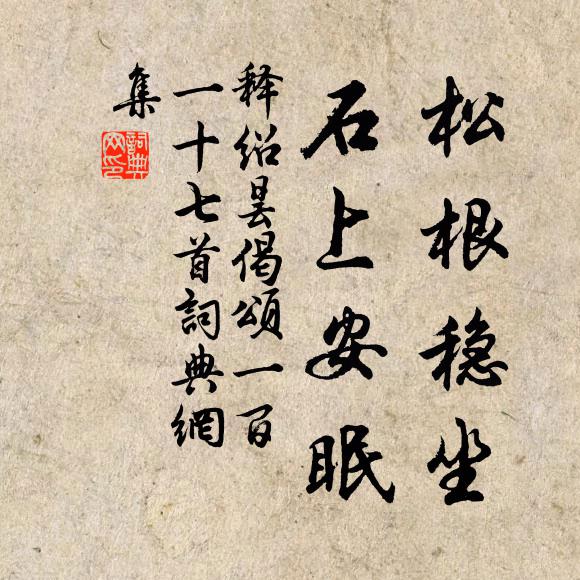 松根稳坐
石上安眠
释绍昙偈頌一百
一十七首詞典網
集
詞典
网印